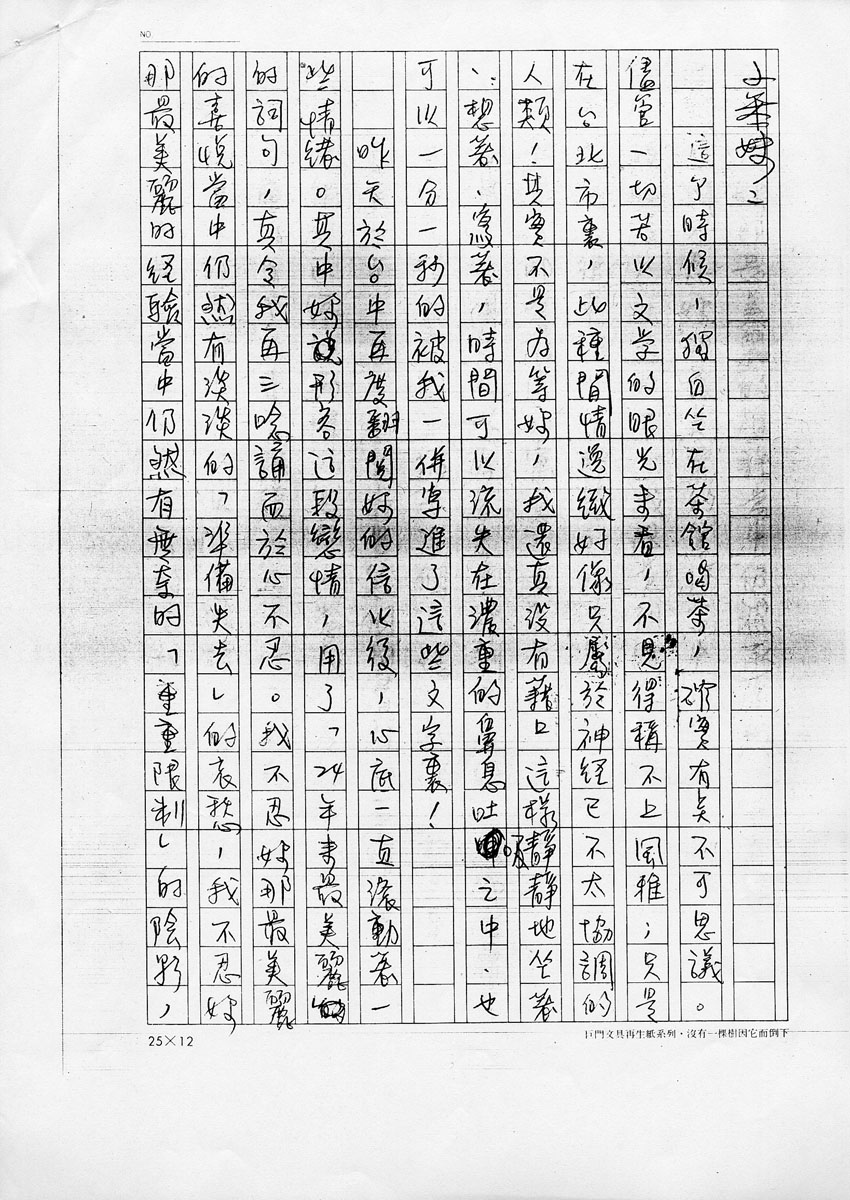 NO.
這個時候，獨自坐在茶館喝茶，確實有點不可思議。
儘管一切若以文學的眼光來看，不見得稱不上風雅；只是
在台北市裏，此種閒情逸緻好像只屬於神經已不太協調的
人類！其實不是為等妳，我還真沒有藉口這樣靜靜地坐著
、想著、寫著，時間可以流失在濃重的鼻息吐吸之中、也
可以一分一秒的被我一併寫進了這些文字裏！
昨天於台中再度翻閱妳的信以後，心底一直滾動著一
些情緒。其中妳說形容這段戀情，用了「24年來最美麗的」
的詞句，真令我再三唸誦而於心不忍。我不忍妳那最美麗
的喜悅當中仍然有淡淡的「準備失去」的哀愁，我不忍妳
那最美麗的經驗當中仍然有無奈的「重重限制」的陰影，
25×12
巨門文具再生紙系列・沒有一棵樹因它而倒下